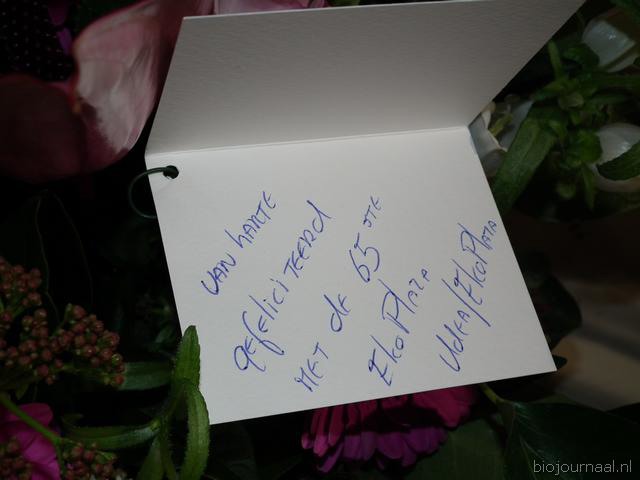 VAN HARTE
GEFELICITEERD
MET DE 65STE
EkoPlaza
Udea/EkoPlaza
biojournaal.nl